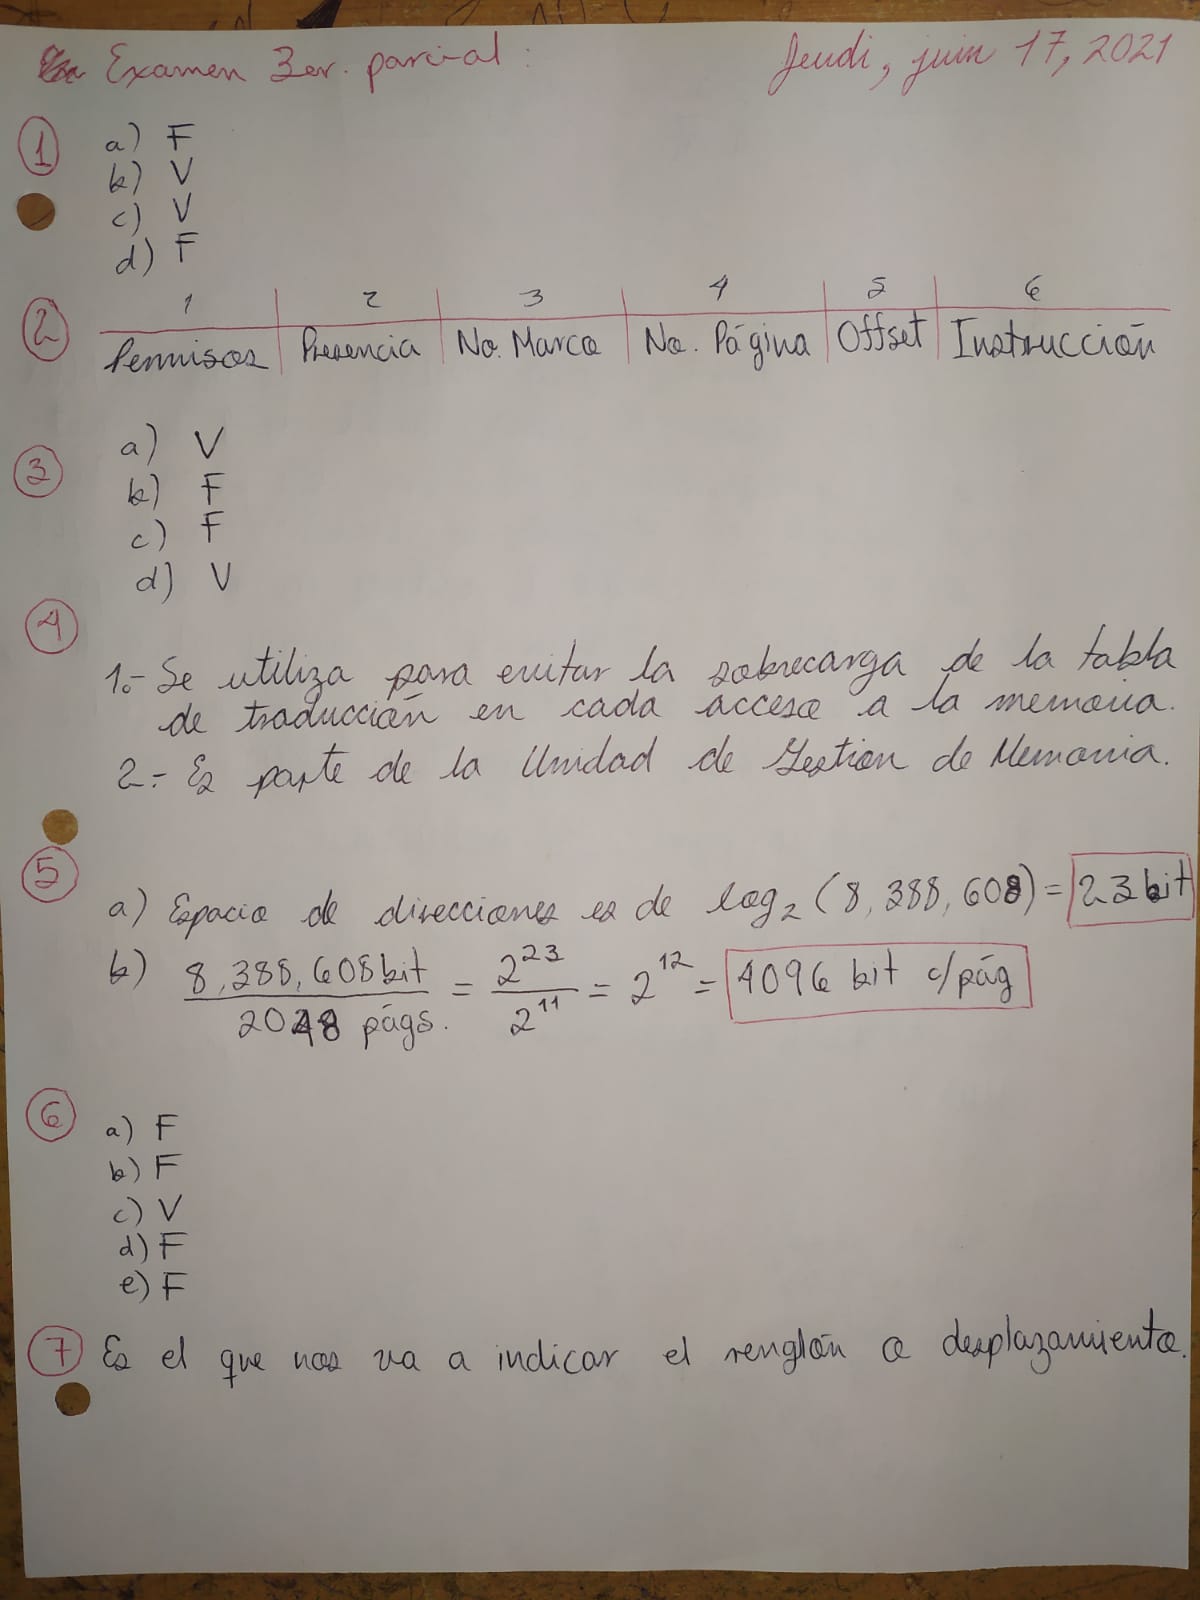 Examen 3er. parcial: Jeudi, juin 17, 2021
1 a) F
b) V
c) V
d) F
1 2 3 4 5 6
2 Permisos Presencia No. Marco No. Página Offset Instrucción
3 a) V
b) F
c) F
d) V
4
1.- Se utiliza para evitar la sobrecarga de la tabla
de traducción en cada acceso a la memoria.
2.- Es parte de la Unidad de Gestion de Memoria.
5
a) Espacio de direcciones es de log₂ (8,388,608) = 23 bit
b) 8,388,608 bit / 2048 págs. = 2²³ / 2¹¹ = 2¹² = 4096 bit c/pág
6
a) F
b) F
c) V
d) F
e) F
7 Es el que nos va a indicar el renglón o desplazamiento.